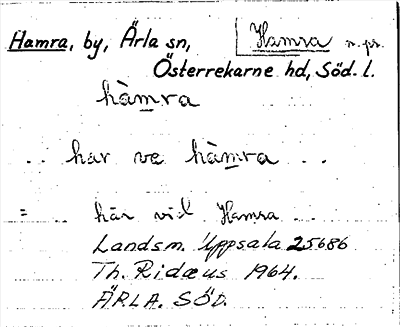 Hamra, by, Ärla sn,
Hamra n. pr.
Österrekarne hd, Söd. l.
hàmra
.. har ve hàmra ..
= .. här vid Hamra ..
Landsm. Uppsala 25686
Th. Ridæus 1964.
ÄRLA. SÖD.